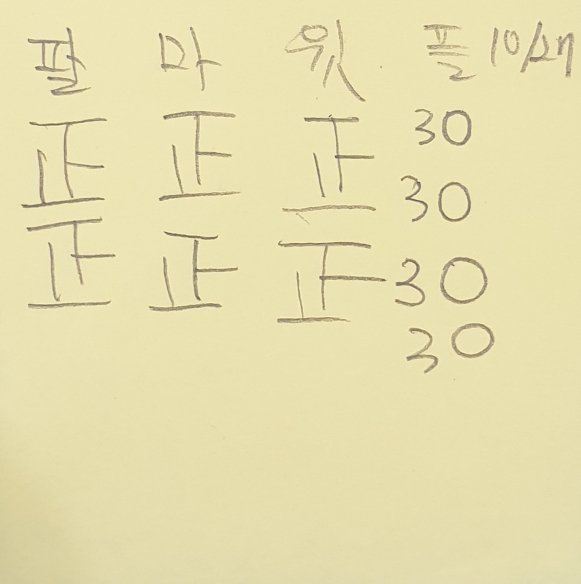 팔 마 윗 플 10/2H
正 正 正 30
正 正 正 30
30
30